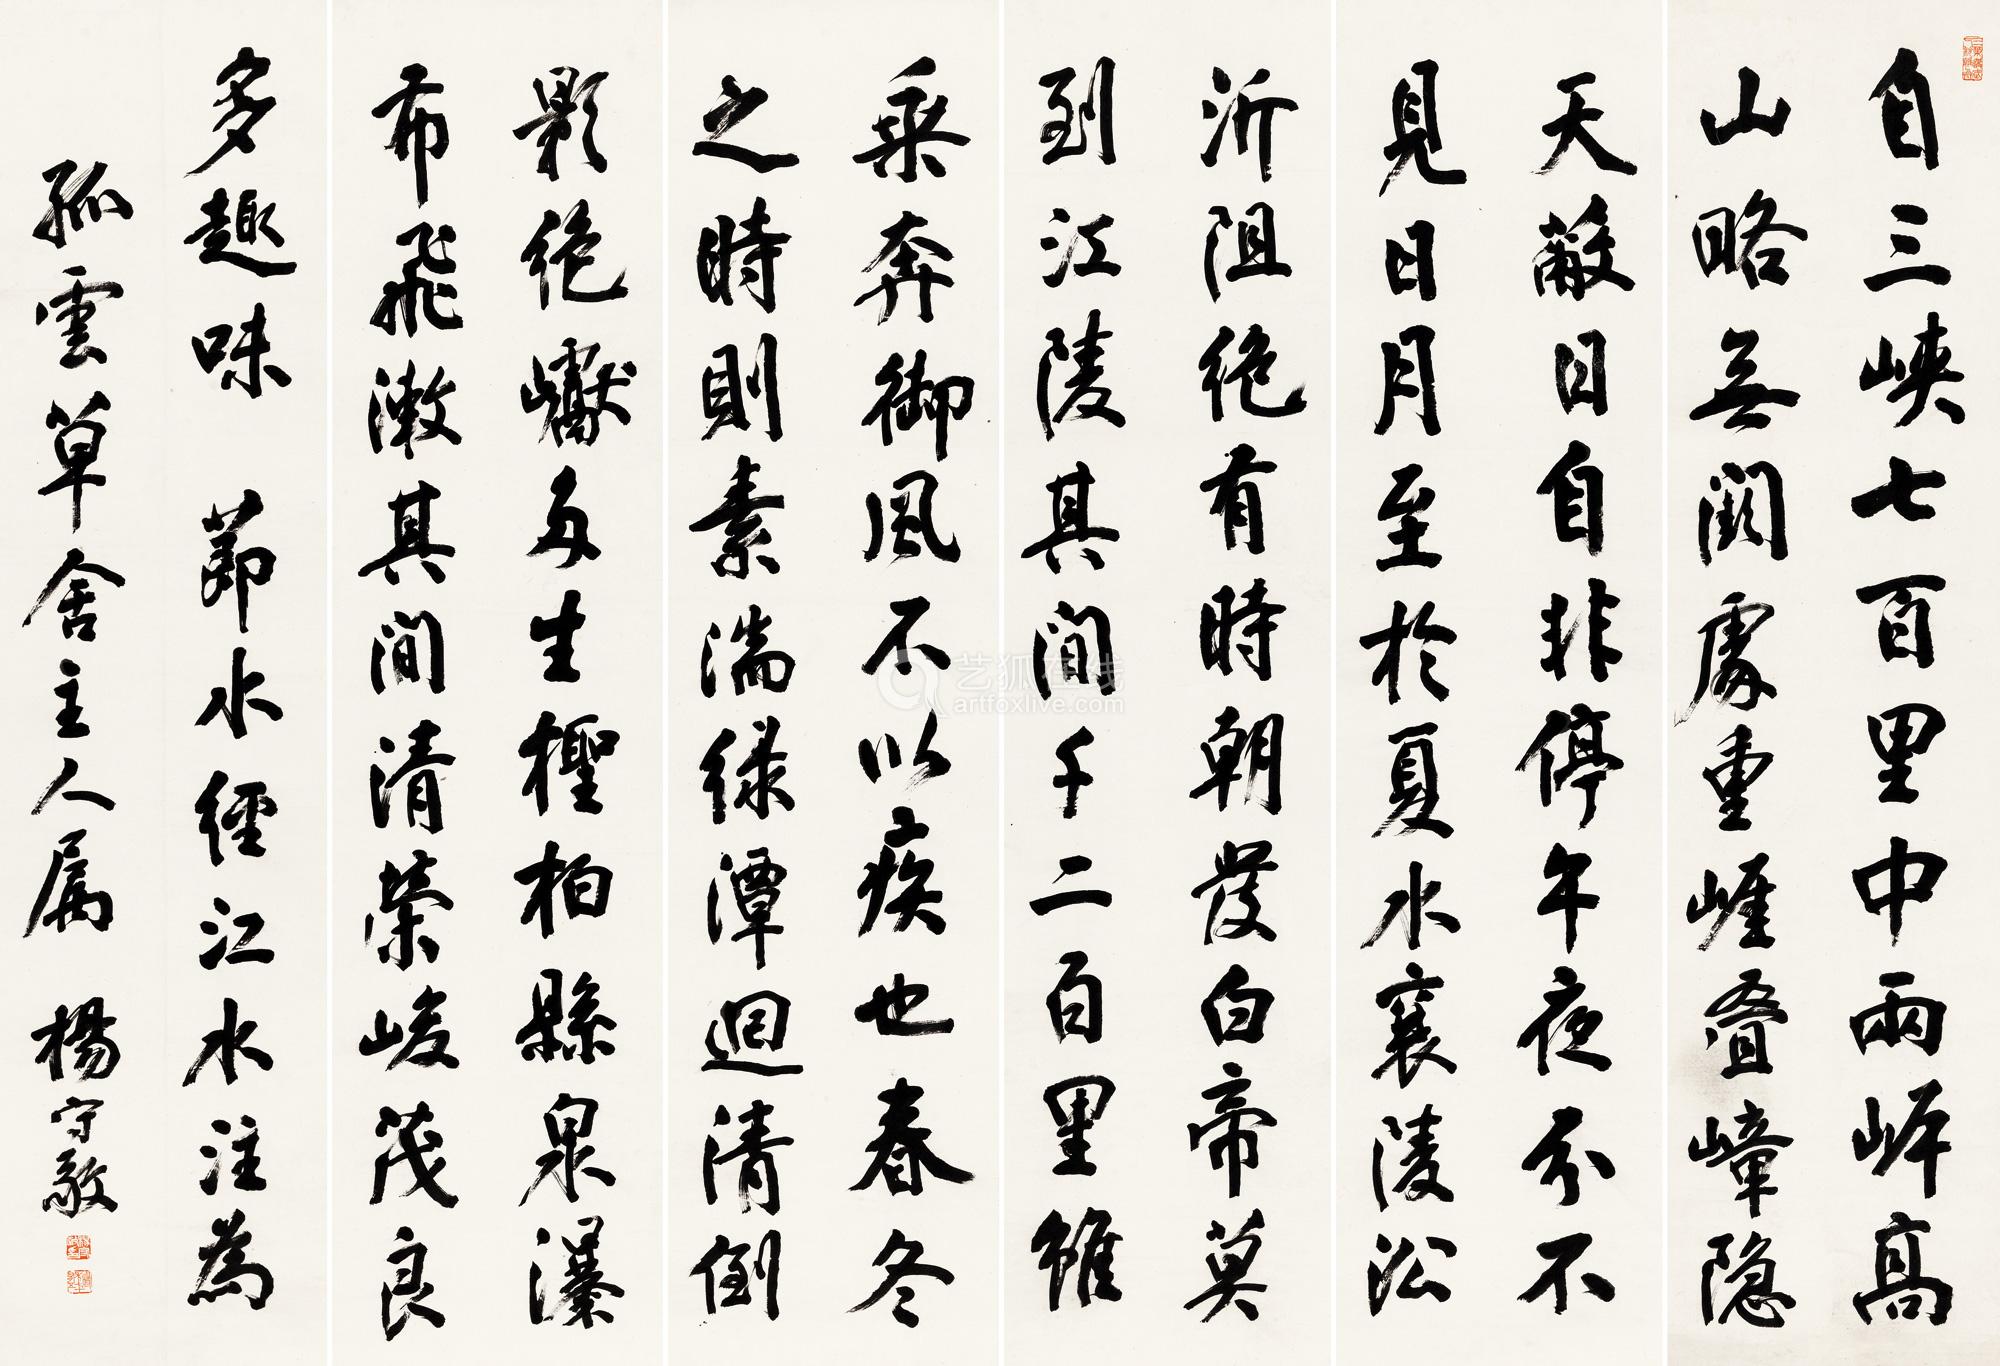 自三峽七百里中兩岸高
山略無闕處重崖疊嶂隱
天蔽日自非停午夜分不
見日月至於夏水襄陵沿
泝阻絕有時朝發白帝莫
到江陵其間千二百里雖
乘奔御風不以疾也春冬
之時則素湍綠潭迴清倒
影絕巘多生檉柏縣泉瀑
布飛漱其間清榮峻茂良
多趣味 節水經江水注為
孤雲草舍主人属 楊守敬
艺狐在线
artfoxlive.com